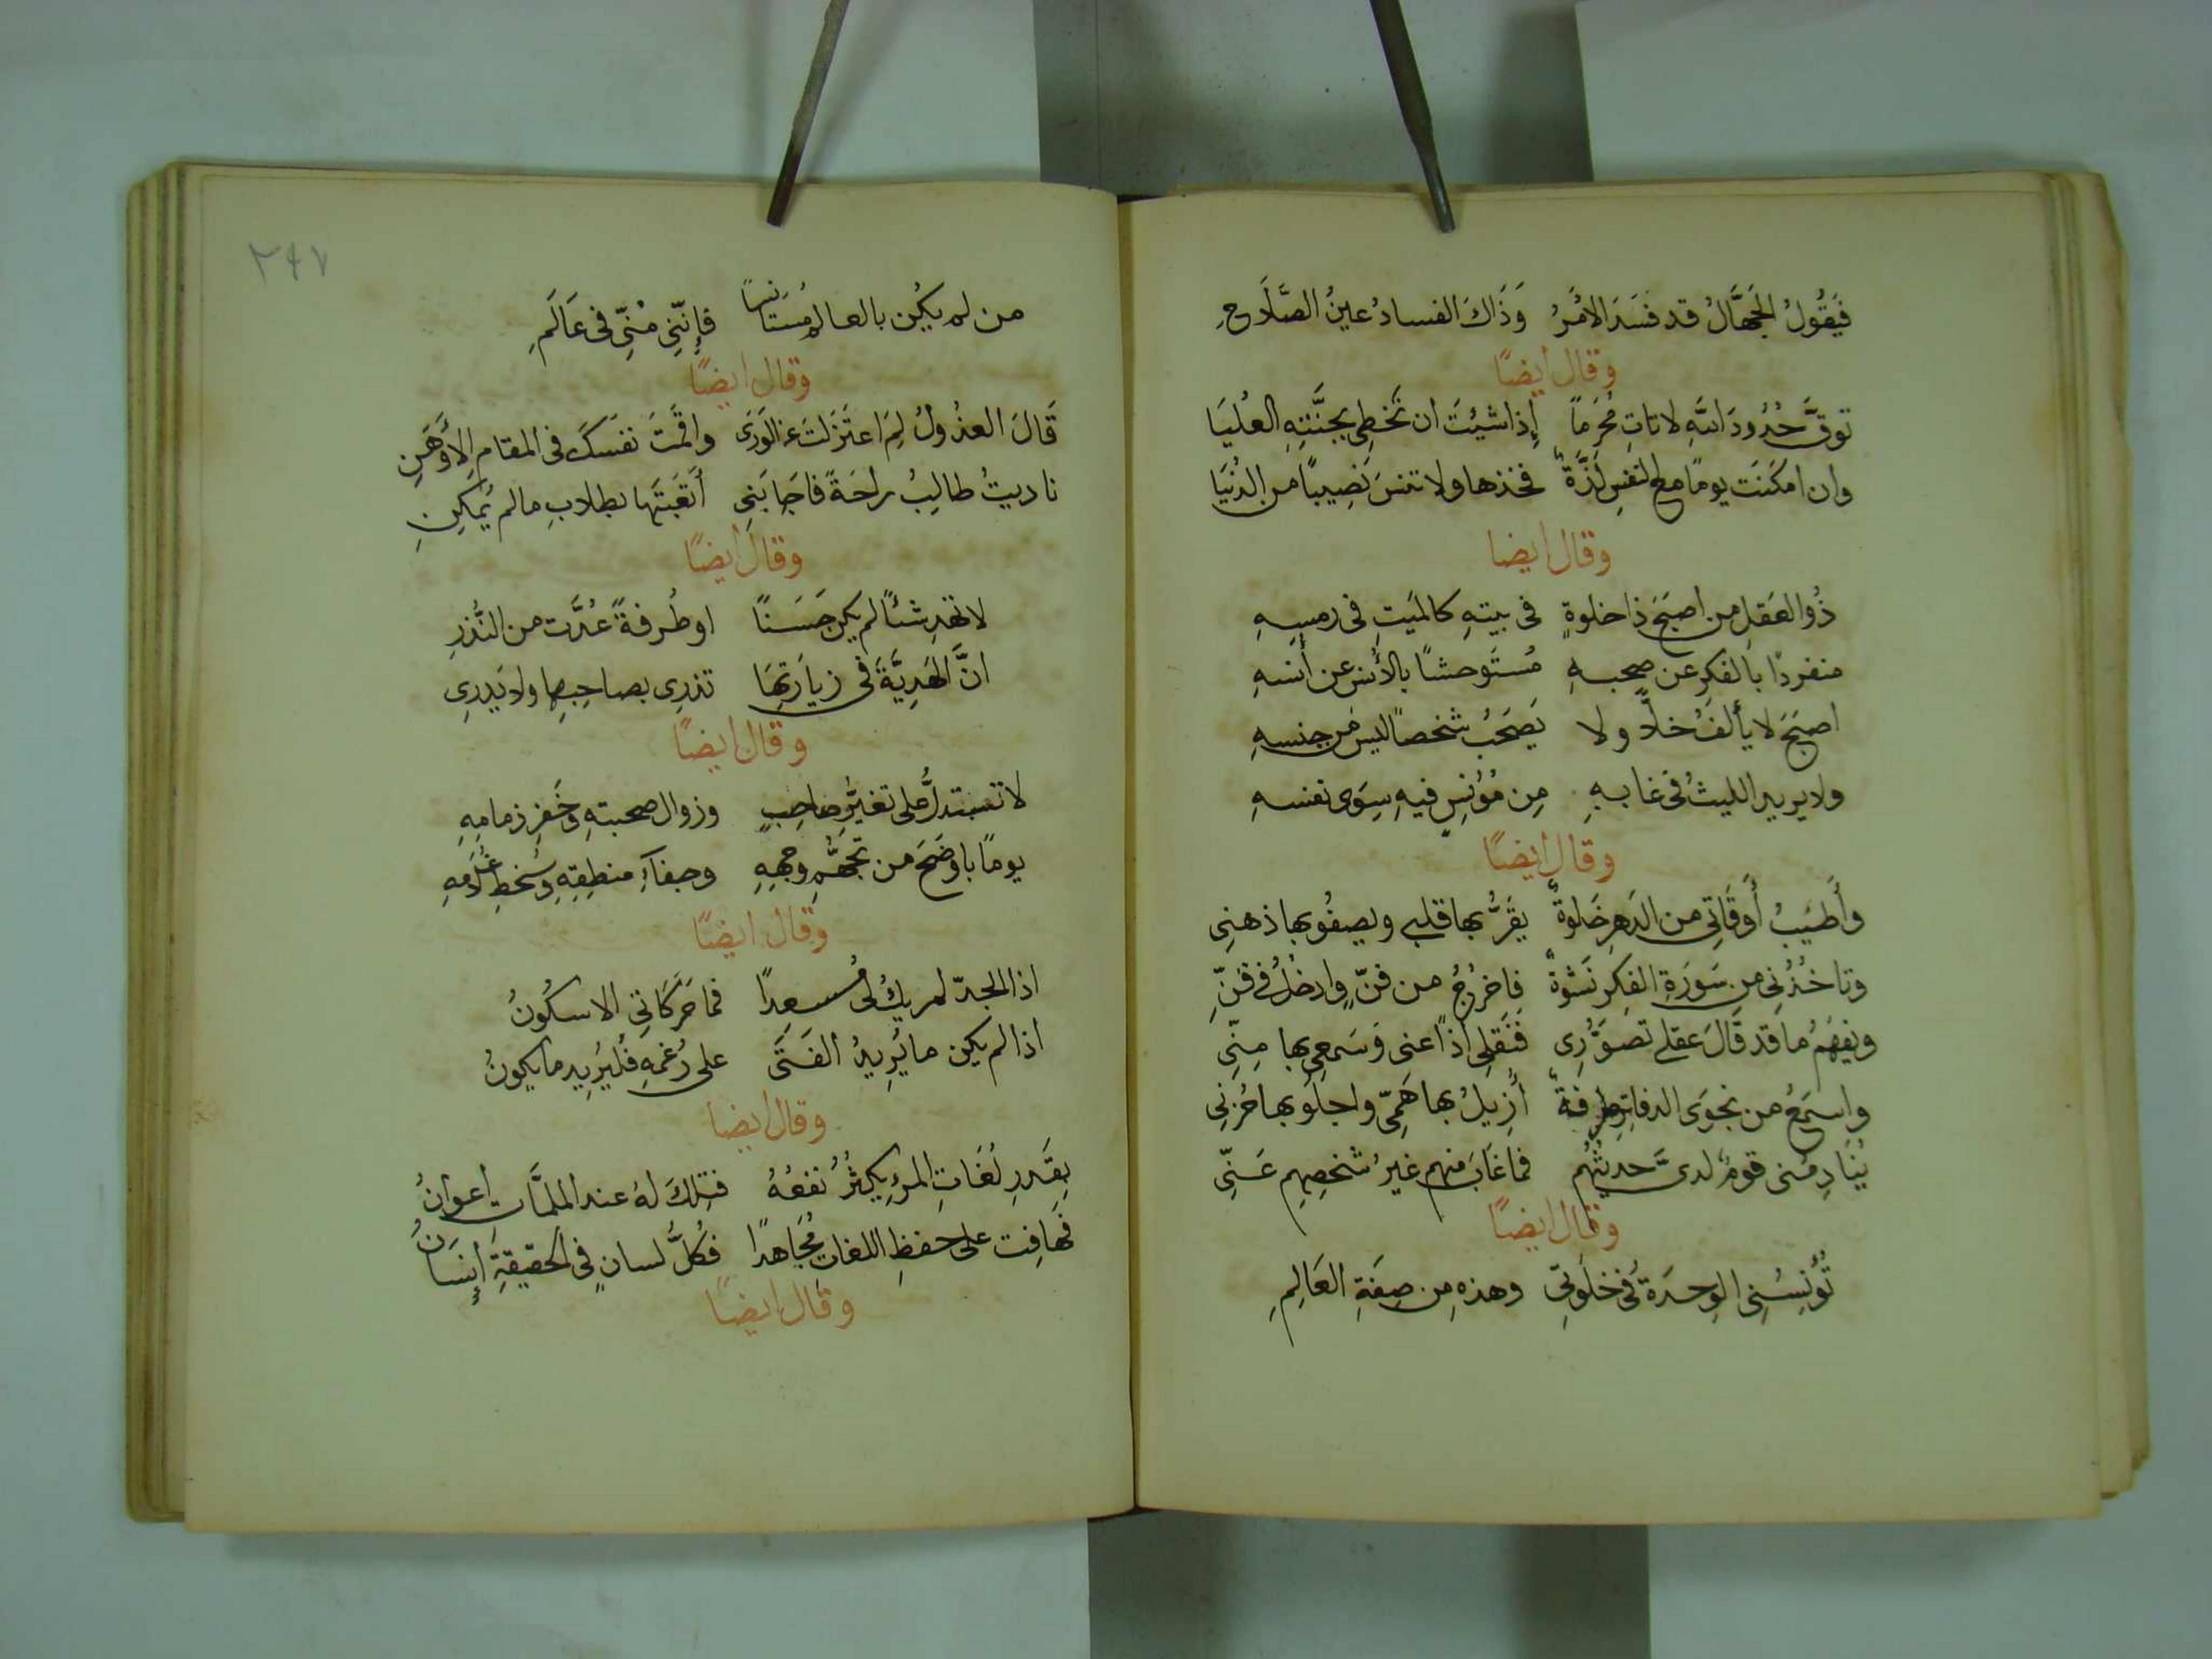 فَيَقُولُ الجُهَّالُ قد فسَدَ الامْرُ وَذَاكَ الفسادُ عينُ الصَّلَاحِ
وقال أيضًا
توقَّ حُدُودَ اللهِ لا تاتِ مُحْرَماً إِذا شيْتَ ان تَحْظى بجنَّتِهِ العُليَا
وان امكَنَت يومًا مع النفسِ لَذَّةٌ فخذها ولا تنسَ نَصِيبًا من الدُنيَا
وقال ايضا
ذُو العَقلِ من اصبَحَ ذا خلوةٍ في بيتهِ كالمَيتِ في رمسِهِ
منفردًا بالفكرِ عن صحبهِ مُستَوحشًا بالأنسِ عن أُنسَهِ
اصبَحَ لا يألفُ خلاًّ ولا يَصحَبُ شخصاً ليسَ من جنسهِ
ولا يريد الليثُ في غابهِ مِن مُؤنسٍ فيهِ سِوَى نفسهِ
وقال ايضًا
وأَطيَبُ أَوقَاتِي من الدَهرِ خَلوةٌ يَقَرُّ بها قلبي ويصفُو بها ذهنِي
وتاخُذُنِي من سَورَةِ الفِكرِ نَشوةٌ فاخرُجُ من فنٍّ وادخُلُ في فنِّ
ويفهَمُ ما قد قَالَ عقلي تصوُّرِى فنَقلي اذًا عنى وَسَمعِى بها مِنّى
واسمَعُ من نجوَى الدفاتِرِ طرفةٌ أُزِيلُ بها هَمّى واجلُو بها حُزنِى
يُنَادِمُنى قومٌ لدىَّ حديثُهُم فما غَابَ منهم غيرُ شخصِهِم عَنِّى
وقال ايضًا
تُؤنِسُنِى الوِحدَةُ في خلوَتِى وهذهِ من صِفَةِ العَالِمِ
٢٤٧
من لم يكُن بالعالم مُستَانِسًا فإِنَّنِي مْنِّي في عَالَمِ
وقال ايضًا
قَالَ العذُولُ لِمَ اعتَزَلتَ عن الوَرَى واقَمتَ نفسَكَ في المقامِ الأَوهَنِ
ناديتُ طالِبُ راحَةً فاجَابَنِى أَتعَبتَها بطلابِ ما لم يُمكِنِ
وقال ايضًا
لا تهدِ شئًا لم يكن حَسَنًا او طُرفةً عُدَّت من النُّذرِ
انَّ الهَدِيَّةَ في زيارَتِهَا تزرِى بصاحِبِها ولا يَدرِى
وقال ايضًا
لا تستدلَّ على تغيُّرِ صاحِبٍ وزوالِ صحبتهِ وخَفرِ ذمامِهِ
يومًا باوضَحَ من تجهُّمِ وجههِ وجفآءِ منطِقِهِ وسُخطِ غُلَامِهِ
وقال ايضًا
اذا الجدّ لم يكُ لى مُسعدًا فما حَرَكَاتِى الا سكُونُ
اذا لم يكن ما يُرِيدُ الفَتَى على رُغمهِ فليُرِيد ما يكونُ
وقال ايضا
بقَدرِ لُغَاتِ المرءِ يكثُرُ نفعُهُ فتِلكَ لهُ عند الملمَّاتِ اعوانُ
فهافِت على حفظِ اللغاتِ مُجَاهدًا فكُلُّ لسانٍ في الحقيقةِ إِنسَانُ
وقال ايضًا